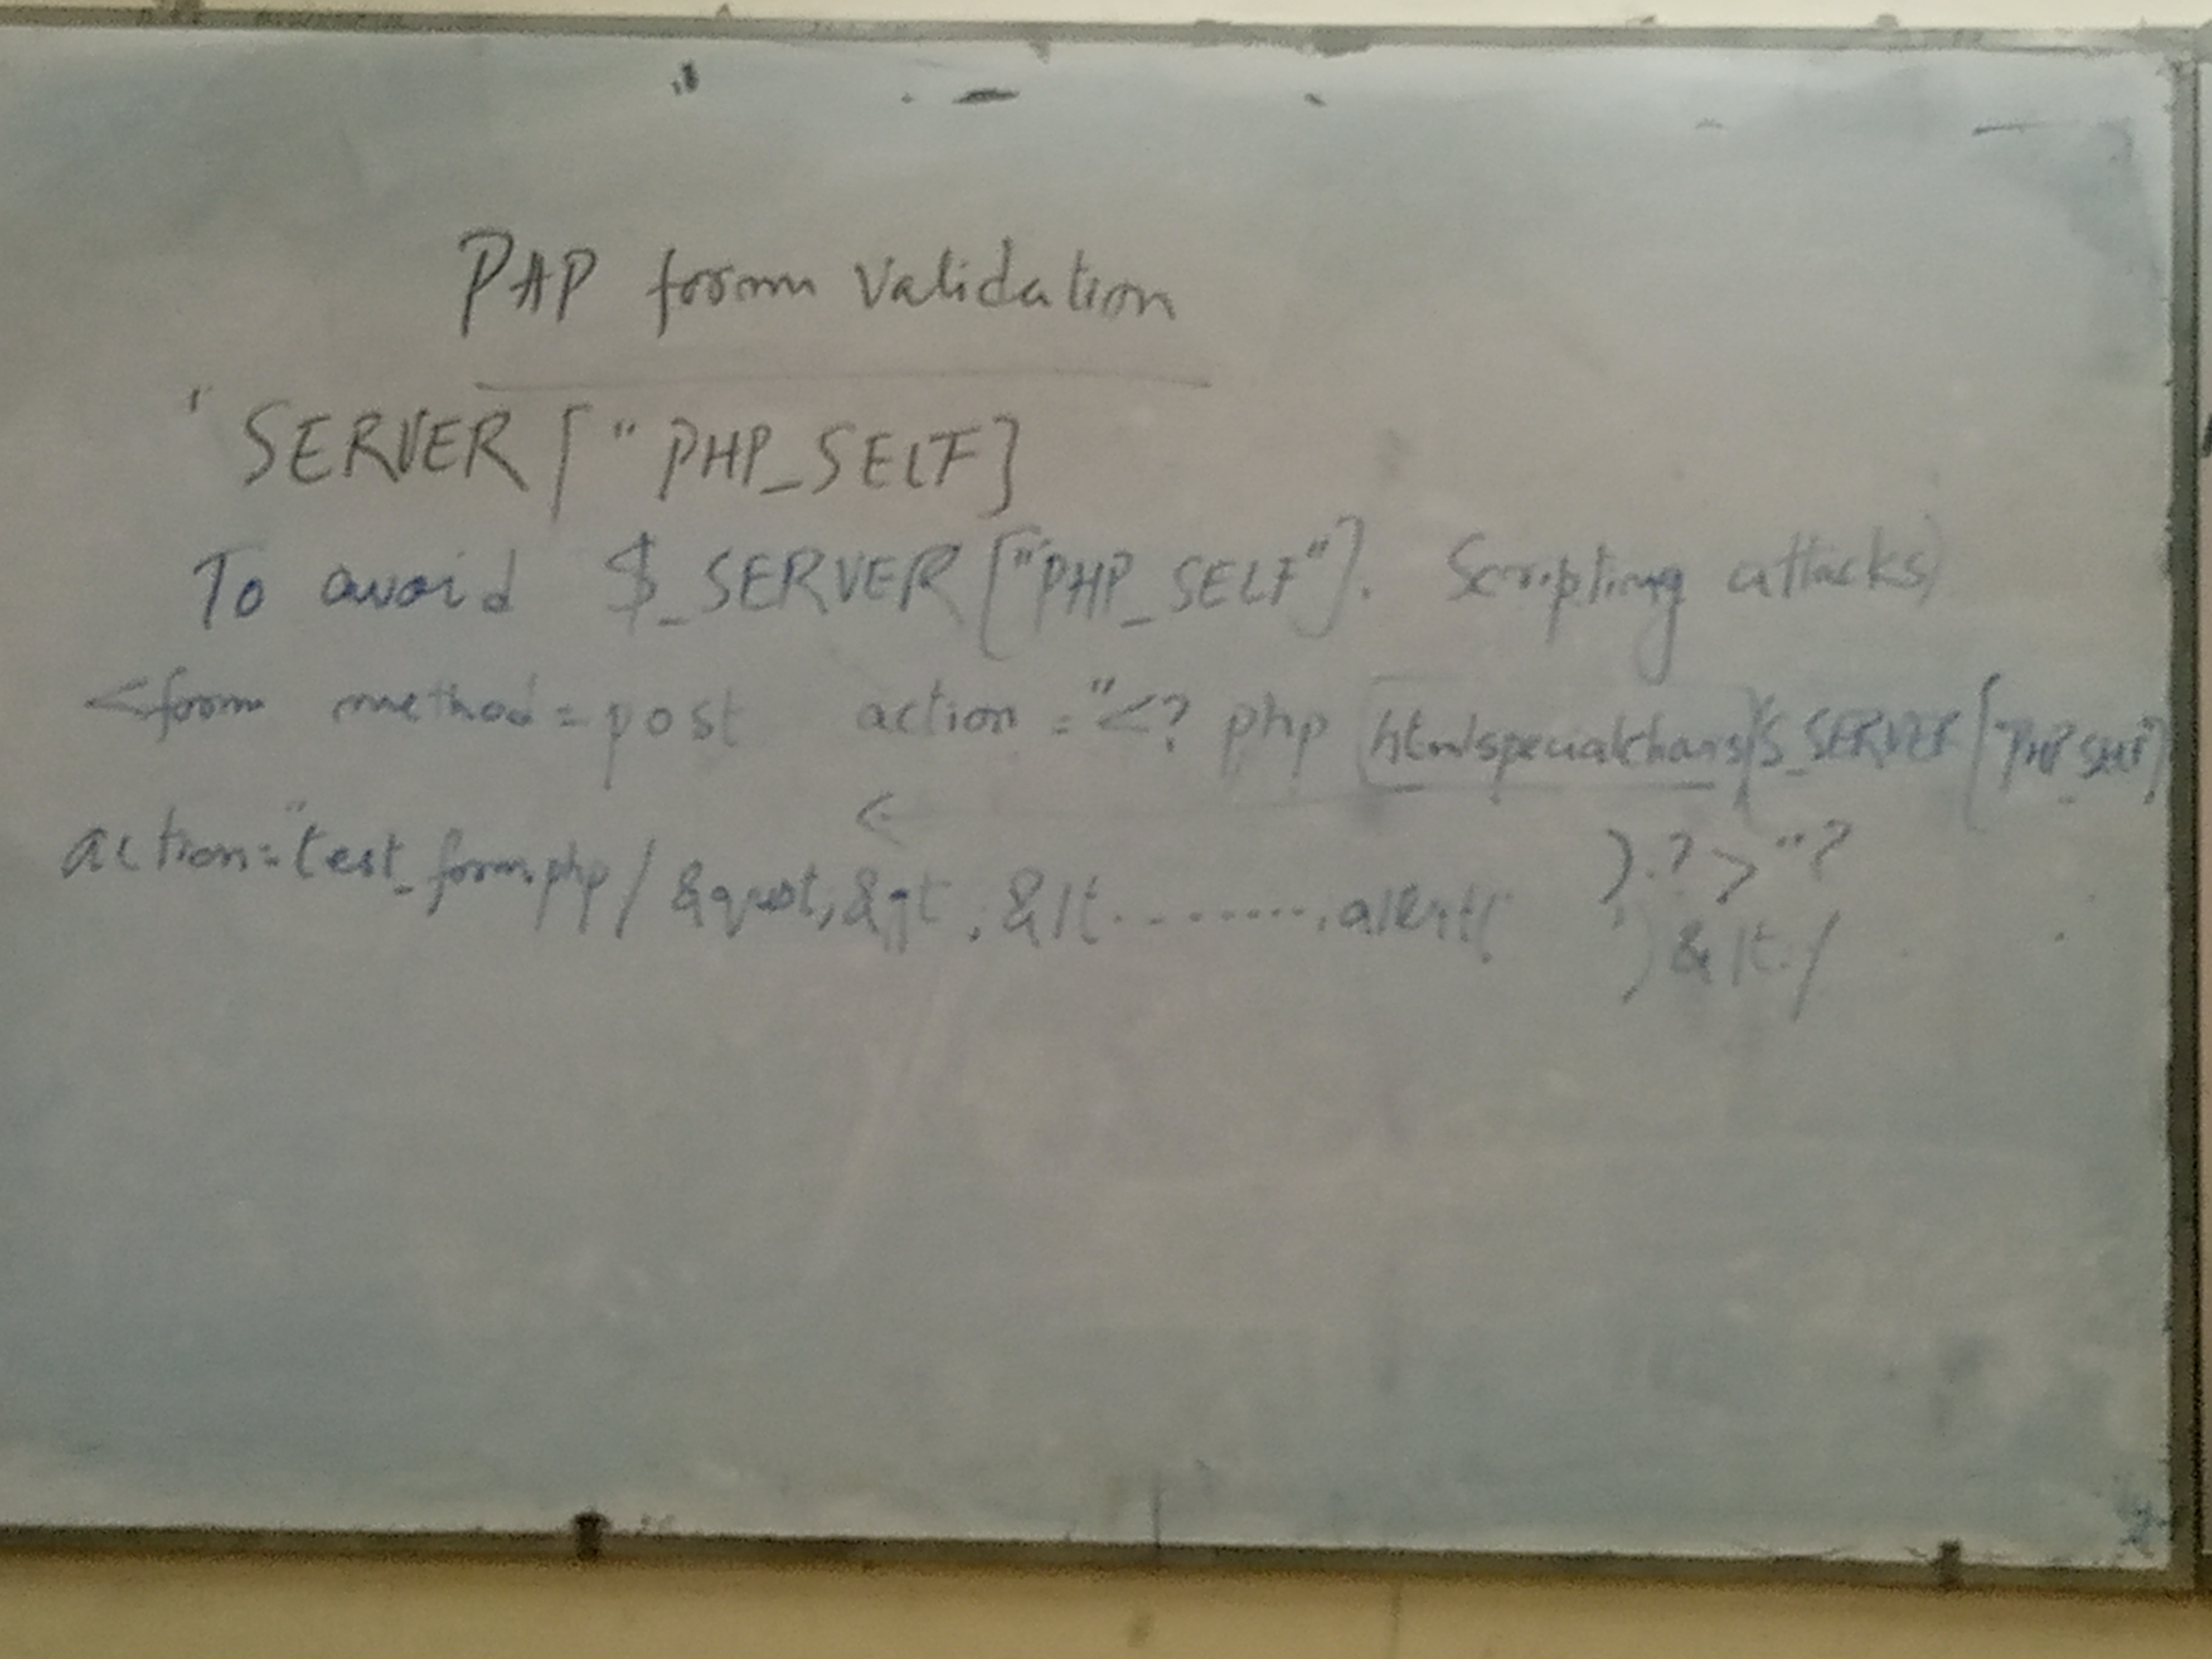 PHP form Validation
SERVER ["PHP_SELF]
To avoid $_SERVER ["PHP_SELF"]. Scripting attacks)
<form method=post action="<? php htmlspecialchars($_SERVER ["PHP_SELF"]
).?>"?
action="test_form.php/ &quot;&gt;&lt.........alert(
')&lt;/